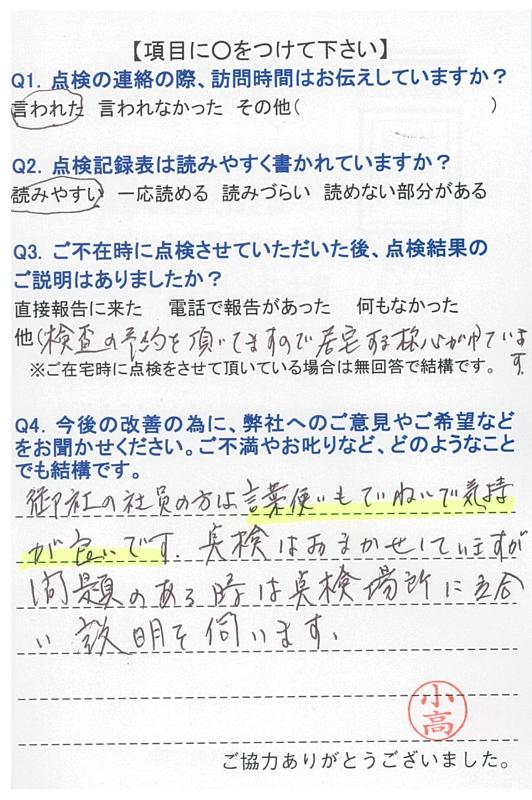 【項目に〇をつけて下さい】
Q1. 点検の連絡の際、訪問時間はお伝えしていますか？
言われた 言われなかった その他( )
Q2. 点検記録表は読みやすく書かれていますか？
読みやすい 一応読める 読みづらい 読めない部分がある
Q3. ご不在時に点検させていただいた後、点検結果の
ご説明はありましたか？
直接報告に来た 電話で報告があった 何もなかった
他(検査の予約を頂いてますので居宅する様心がけていま
す。
※ご在宅時に点検をさせて頂いている場合は無回答で結構です。
Q4. 今後の改善の為に、弊社へのご意見やご希望など
をお聞かせください。ご不満やお叱りなど、どのようなこと
でも結構です。
御社の社員の方は言葉使いもていねいで気持
が良いです。点検はおまかせしていますが
問題のある時は点検場所に立合
い説明を伺います。
小高
ご協力ありがとうございました。